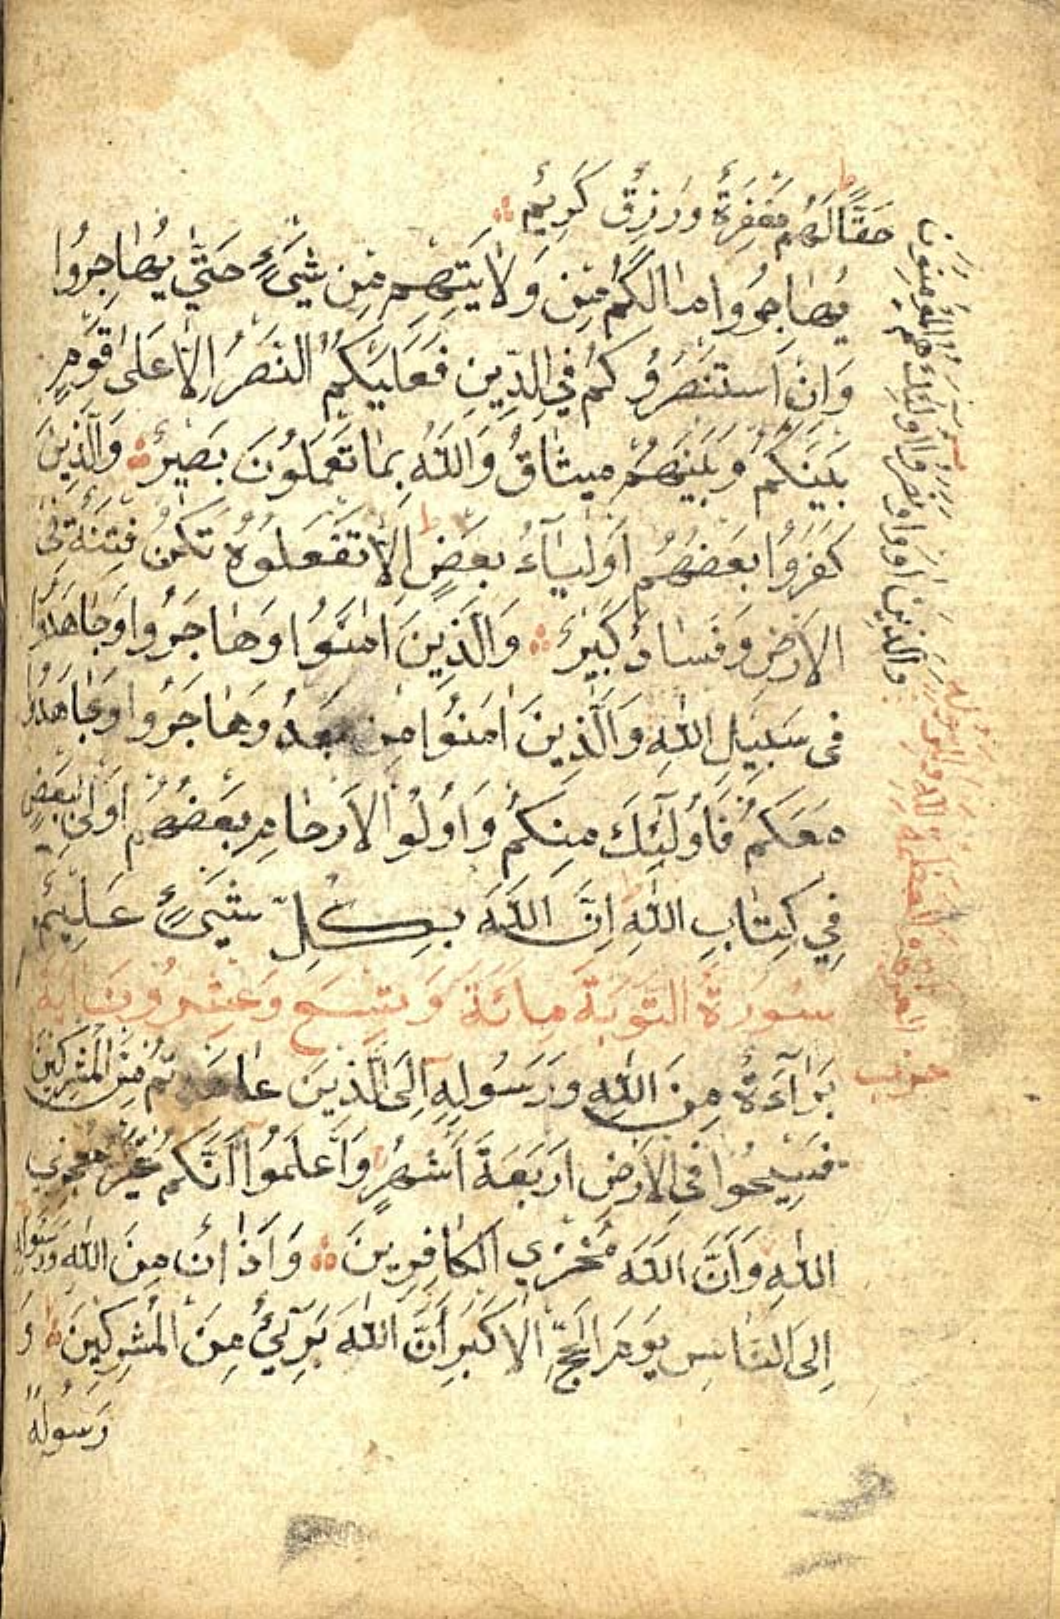 حَقًّا لَهُمْ مَغْفِرَةٌ وَرِزْقٌ كَرِيمٌ
يُهَاجِرُوا مَا لَكُمْ مِنْ وَلَايَتِهِمْ مِنْ شَيْءٍ حَتَّى يُهَاجِرُوا
وَإِنْ اسْتَنْصَرُوكُمْ فِي الدِّينِ فَعَلَيْكُمُ النَّصْرُ إِلَّا عَلَى قَوْمٍ
بَيْنَكُمْ وَبَيْنَهُمْ مِيثَاقٌ وَاللَّهُ بِمَا تَعْمَلُونَ بَصِيرٌ وَالَّذِينَ
كَفَرُوا بَعْضُهُمْ أَوْلِيَآءُ بَعْضٍ إِلَّا تَفْعَلُوهُ تَكُنْ فِتْنَةٌ فِي
الْأَرْضِ وَفَسَادٌ كَبِيرٌ وَالَّذِينَ اٰمَنُوا وَهَاجَرُوا وَجَاهَدُوا
فِي سَبِيلِ اللهِ وَالَّذِينَ اٰمَنُوا مِنْ بَعْدُ وَهَاجَرُوا وَجَاهَدُوا
مَعَكُمْ فَأُولَٰئِكَ مِنْكُمْ وَأُولُوا الْأَرْحَامِ بَعْضُهُمْ أَوْلَى بِبَعْضٍ
فِي كِتَابِ اللهِ إِنَّ اللَّهَ بِكُلِّ شَيْءٍ عَلِيمٌ
سُورَةُ التَّوْبَةِ مِائَةٌ وَتِسْعٌ وَعِشْرُونَ آيَةً
بَرَآءَةٌ مِنَ اللهِ وَرَسُولِهِ إِلَى الَّذِينَ عَاهَدْتُمْ مِنَ الْمُشْرِكِينَ
فَسِيحُوا فِي الْأَرْضِ أَرْبَعَةَ أَشْهُرٍ وَاعْلَمُوا أَنَّكُمْ غَيْرُ مُعْجِزِي
اللهِ وَأَنَّ اللَّهَ مُخْزِي الْكَافِرِينَ وَأَذَانٌ مِنَ اللهِ وَرَسُولِهِ
إِلَى النَّاسِ يَوْمَ الْحَجِّ الْأَكْبَرِ أَنَّ اللهَ بَرِيٓءٌ مِنَ الْمُشْرِكِينَ وَ
رَسُولُهُ
حزب